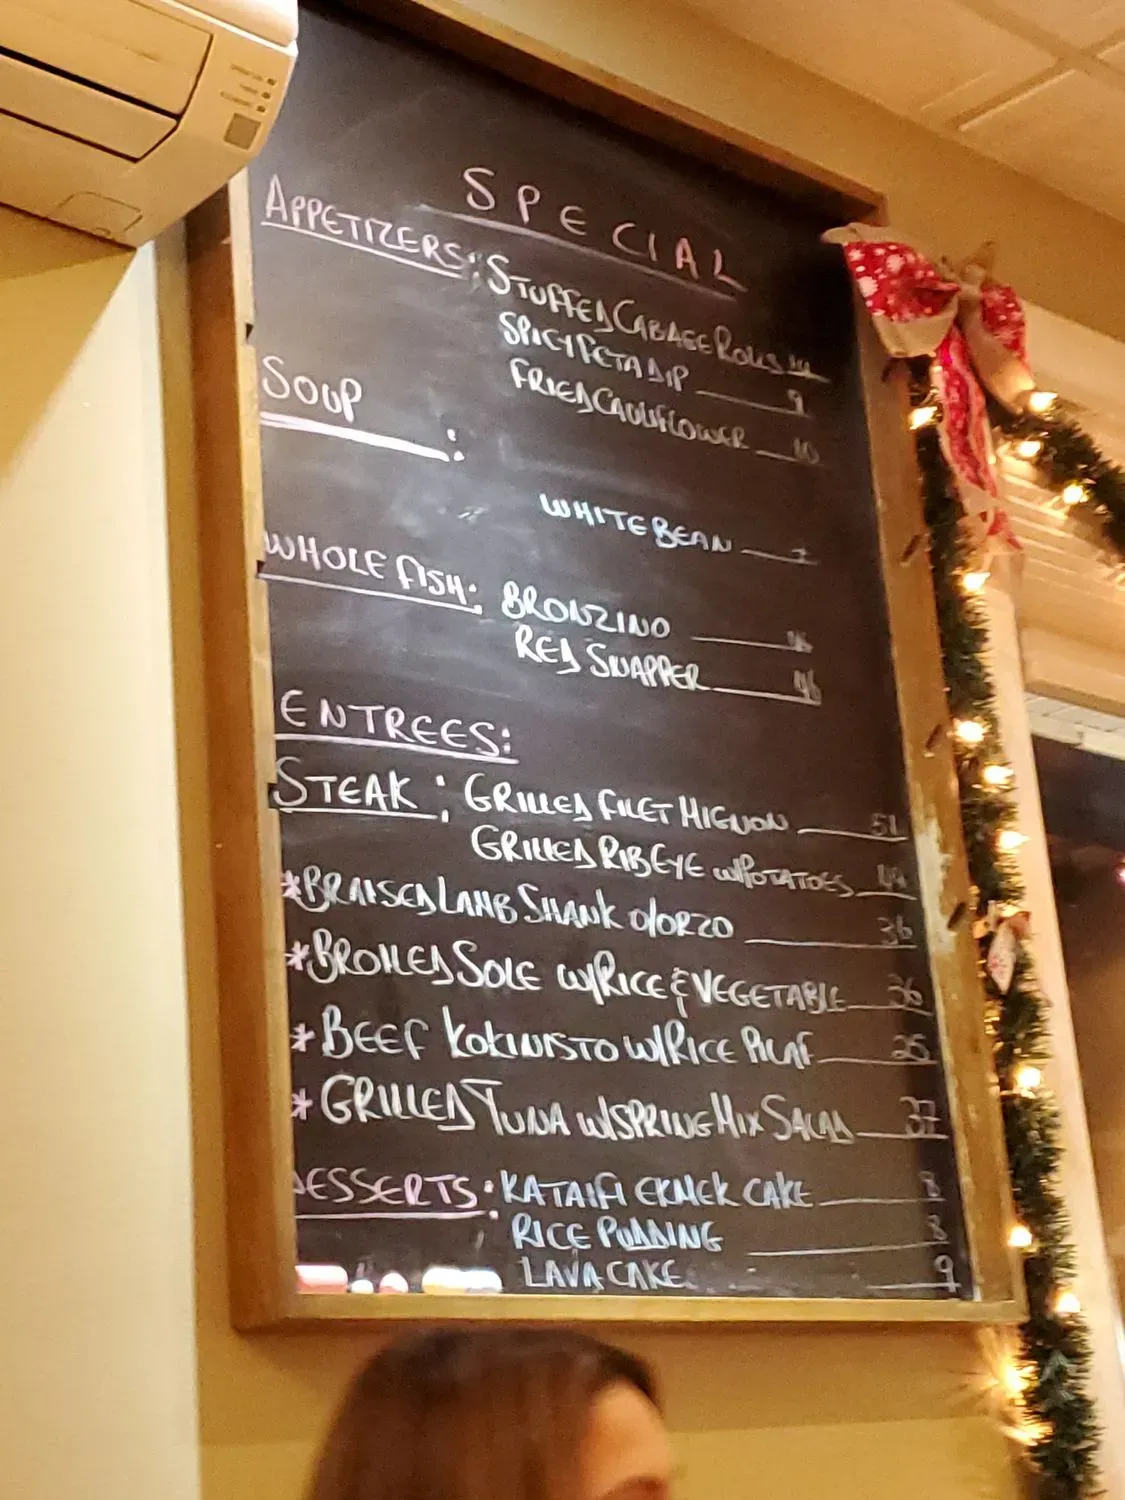 SPECIAL
APPETIZERS: STUFFED CABAGE ROLLS
SPICY FETA DIP 9
FRIED CAULIFLOWER 10
SOUP :
WHITE BEAN 7
WHOLE FISH: BRONZINO
RED SNAPPER
ENTREES:
STEAK : GRILLED FILET MIGNON 51
GRILLED RIB EYE W/POTATOES
*BRAISED LAMB SHANK O/ORZO 36
*BROILED SOLE W/RICE & VEGETABLE 36
*BEEF KOKINISTO W/RICE PILAF 25
*GRILLED TUNA W/SPRING MIX SALAD 37
DESSERTS: KATAIFI EKMEK CAKE 8
RICE PUDDING 8
LAVA CAKE 9